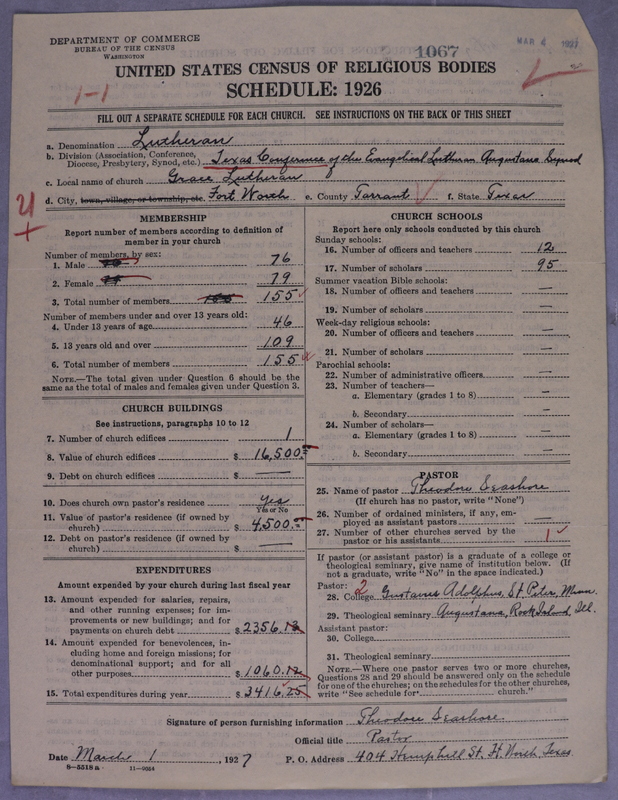 DEPARTMENT OF COMMERCE
BUREAU OF THE CENSUS
WASHINGTON
1067
MAR 4 1927
UNITED STATES CENSUS OF RELIGIOUS BODIES
SCHEDULE: 1926
1-1
FILL OUT A SEPARATE SCHEDULE FOR EACH CHURCH. SEE INSTRUCTIONS ON THE BACK OF THIS SHEET
a. Denomination Lutheran
b. Division (Association, Conference, Diocese, Presbytery, Synod, etc.) Texas Conference of the Evangelical Lutheran Augustana Synod
c. Local name of church Grace Lutheran
d. City, town, village, or township, etc. Fort Worth e. County Tarrant f. State Texas
MEMBERSHIP
Report number of members according to definition of
member in your church
Number of members, by sex:
1. Male 76
2. Female 79
3. Total number of members 155
Number of members under and over 13 years old:
4. Under 13 years of age 46
5. 13 years old and over 109
6. Total number of members 155
NOTE.—The total given under Question 6 should be the
same as the total of males and females given under Question 3.
CHURCH BUILDINGS
See instructions, paragraphs 10 to 12
7. Number of church edifices 1
8. Value of church edifices $ 16,500
9. Debt on church edifices $ —
10. Does church own pastor's residence Yes
Yes or No
11. Value of pastor's residence (if owned by
church) $ 4,500
12. Debt on pastor's residence (if owned by
church) $ —
EXPENDITURES
Amount expended by your church during last fiscal year
13. Amount expended for salaries, repairs,
and other running expenses; for im-
provements or new buildings; and for
payments on church debt $ 2356.13
14. Amount expended for benevolences, in-
cluding home and foreign missions; for
denominational support; and for all
other purposes $ 1060.12
15. Total expenditures during year $ 3416.25
CHURCH SCHOOLS
Report here only schools conducted by this church
Sunday schools:
16. Number of officers and teachers 12
17. Number of scholars 95
Summer vacation Bible schools:
18. Number of officers and teachers —
19. Number of scholars —
Week-day religious schools:
20. Number of officers and teachers —
21. Number of scholars —
Parochial schools:
22. Number of administrative officers —
23. Number of teachers—
a. Elementary (grades 1 to 8) —
b. Secondary —
24. Number of scholars—
a. Elementary (grades 1 to 8) —
b. Secondary —
PASTOR
25. Name of pastor Theodore Seashore
(If church has no pastor, write "None")
26. Number of ordained ministers, if any, em-
ployed as assistant pastors —
27. Number of other churches served by the
pastor or his assistants 1
If pastor (or assistant pastor) is a graduate of a college or
theological seminary, give name of institution below. (If
not a graduate, write "No" in the space indicated.)
Pastor: 2
28. College Gustavus Adolphus, St. Peter, Minn.
29. Theological seminary Augustana, Rock Island, Ill.
Assistant pastor:
30. College
31. Theological seminary
NOTE.—Where one pastor serves two or more churches,
Questions 28 and 29 should be answered only on the schedule
for one of the churches; on the schedules for the other churches,
write "See schedule for church."
Signature of person furnishing information Theodore Seashore.
Official title Pastor
Date March 1, 1927 P. O. Address 404 Hemphill St. Ft. Worth Texas.
8—5518 a 11—9084